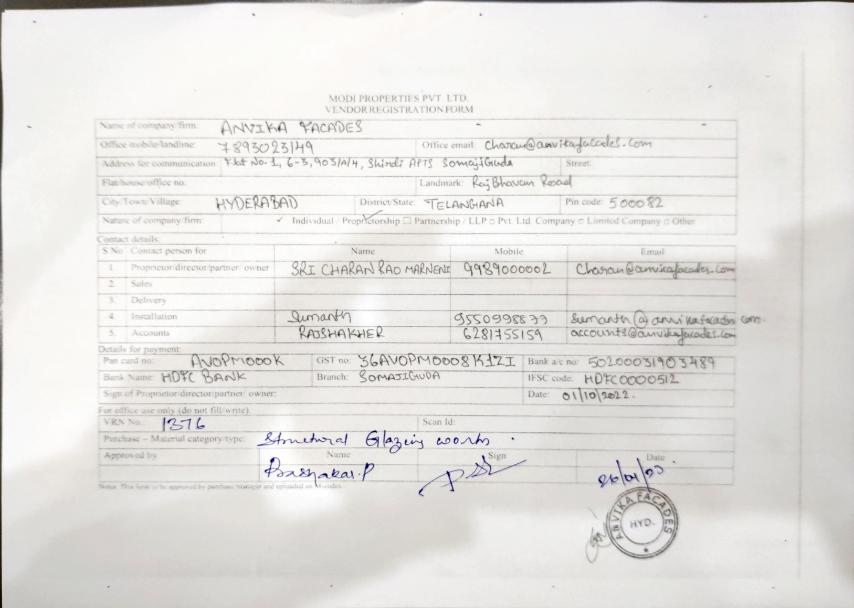 MODI PROPERTIES PVT. LTD.
VENDOR REGISTRATION FORM
Name of company/firm: ANVIKA FACADES
Office mobile/landline: 7893023149 Office email: Charan@anvikafacades.com
Address for communication: Flat No-1, 6-3,903/A/4, Shirdi APTS SomajiGuda Street:
Flat/house/office no: Landmark: RajBhavan Road
City/Town/Village HYDERABAD District/State: TELANGANA Pin code: 500082
Nature of company/firm: ✓ Individual / Proprietorship □ Partnership / LLP □ Pvt. Ltd. Company □ Limited Company □ Other
Contact details:
S No Contact person for Name Mobile Email
1. Proprietor/director/partner/ owner SRI CHARAN RAO MARNENI 9989000002 Charan@anvikafacades.com
2. Sales
3. Delivery
4. Installation Sumanth 9550998877 Sumanth@anvikafacades.com.
5. Accounts RAJSHAKHER 6281755159 accounts@anvikafacades.com
Details for payment:
Pan card no: AVOPM000K GST no: 36AVOPM0008K1ZI Bank a/c no: 50200031903489
Bank Name: HDFC BANK Branch: SOMAJIGUDA IFSC code: HDFC0000512
Sign of Proprietor/director/partner/ owner: Date: 01/10/2022.
For office use only (do not fill/write).
VRN No. 1376 Scan Id:
Purchase – Material category/type: Structural Glazing works.
Approved by Name Sign Date
Bashakar.P
Note: This form to be approved by purchase manager and uploaded on
ANVIKA FACADES
HYD.